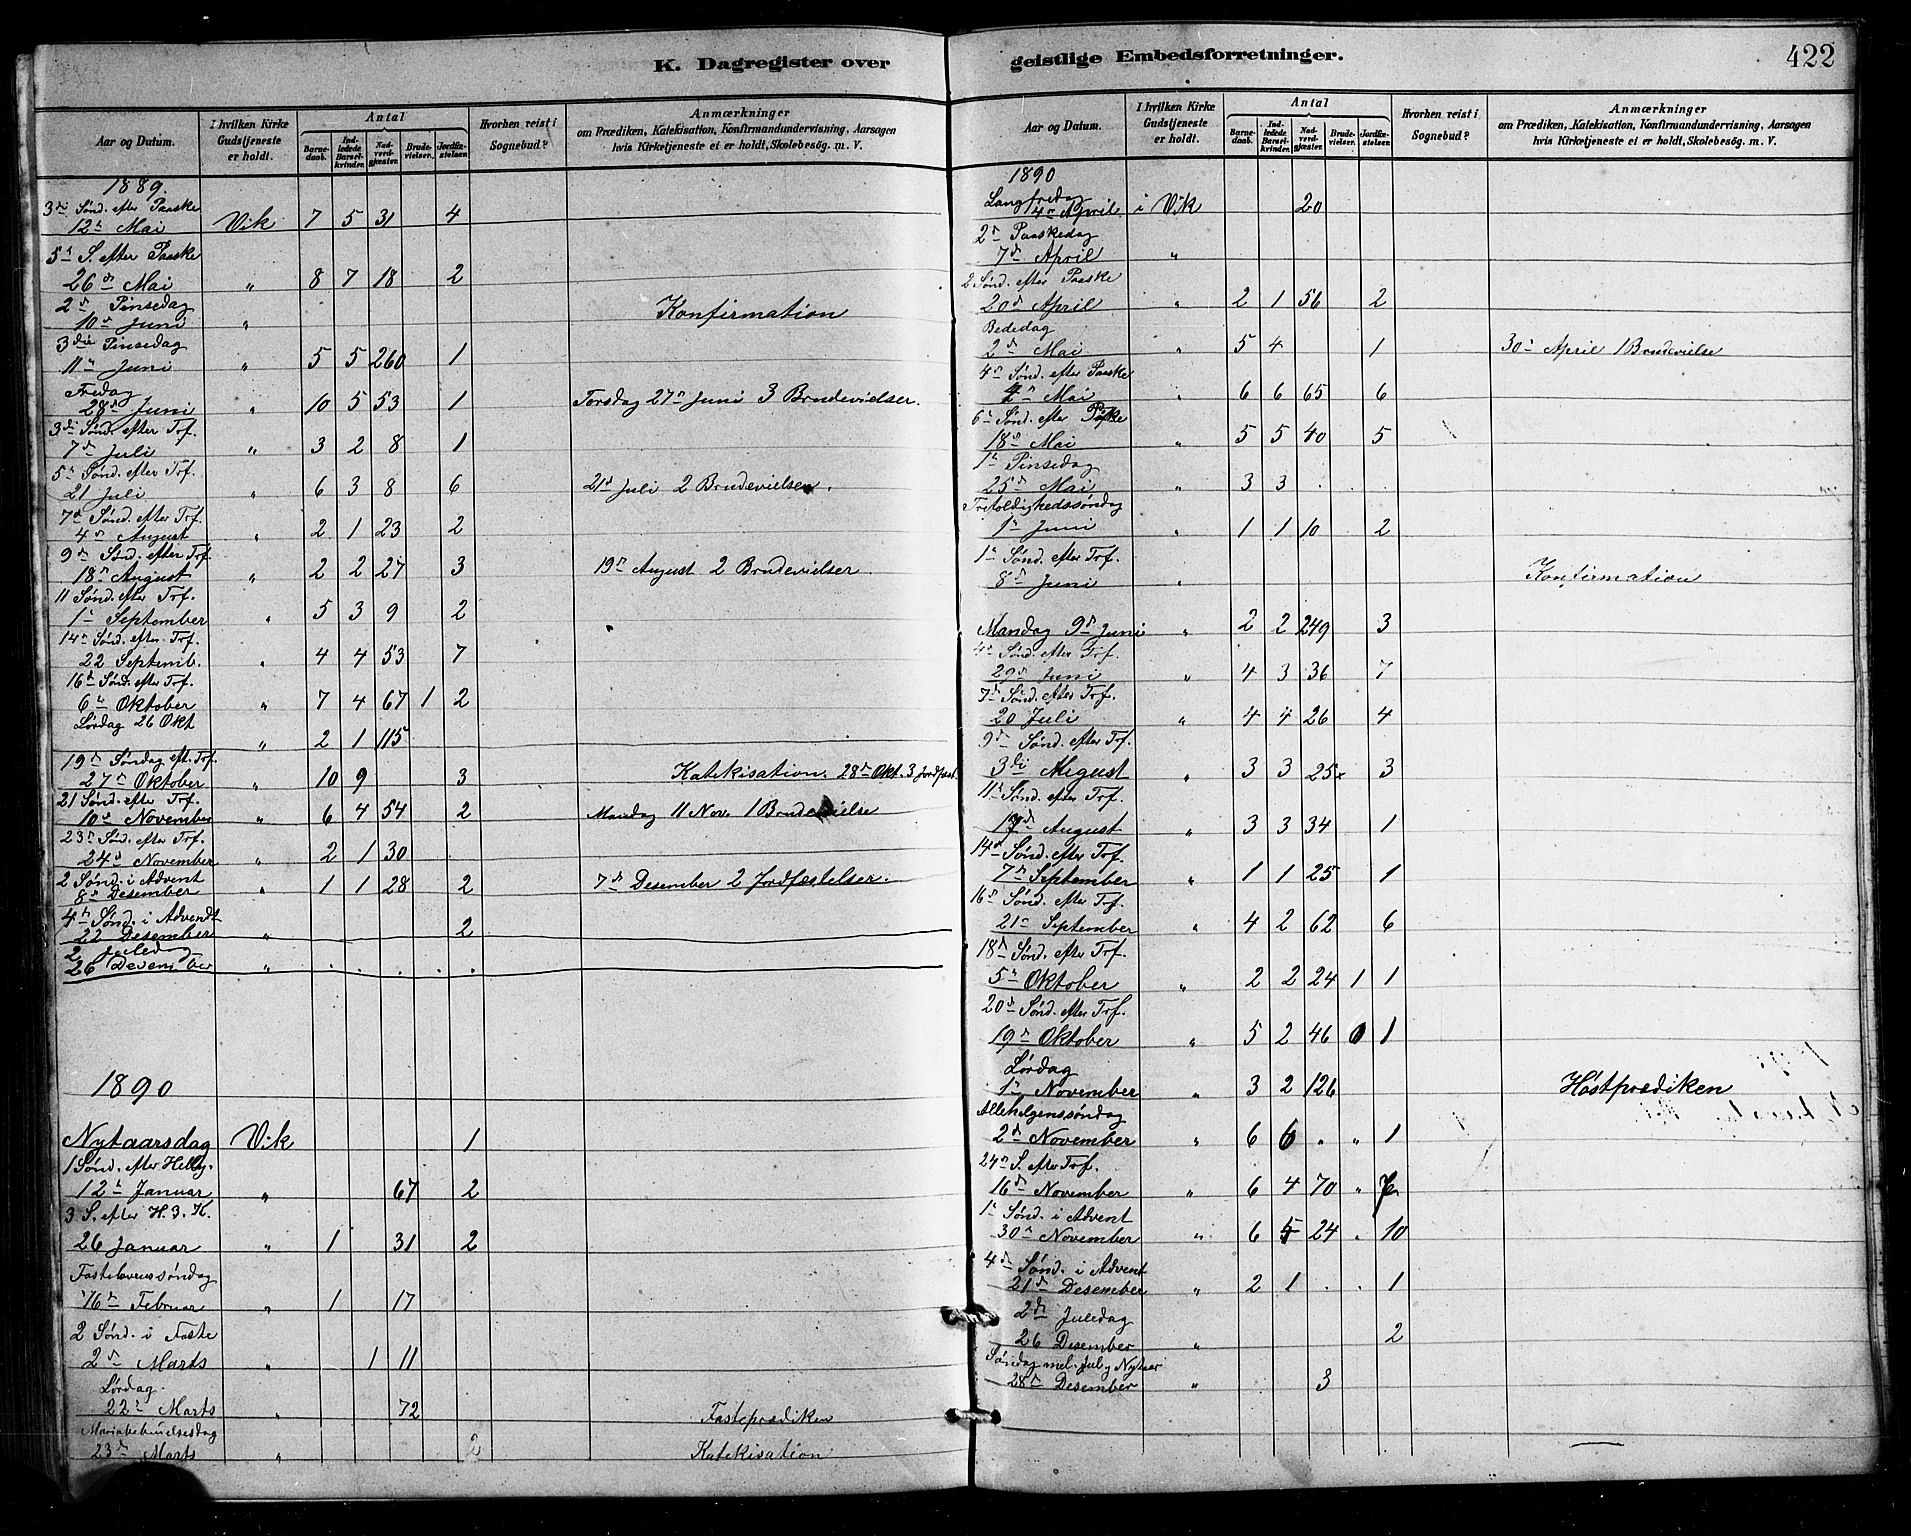 K. Dagregister over
Aar og Datum. I hvilken Kirke Gudstjeneste er holdt. Antal Barnedaab. Indledede Barselkvinder. Nadverdgjæster. Brudevielser. Jordfæstelser. Hvorhen reist i Sognebud? Anmærkninger om Prædiken, Katekisation, Konfirmandundervisning, Aarsagen hvis Kirketjeneste ei er holdt, Skolebesøg. m. V.
1889.
3di Sønd. efter Paaske
12te Mai Vik 7 5 31 4
5te S. efter Paaske
26de Mai " 8 7 18 2
2den Pinsedag
10de Juni " Konfirmation
3die Pinsedag
11te Juni " 5 5 260 1
Fredag
28de Juni " 10 5 53 1 Torsdag 27de Juni 3 Brudevielser.
3di Sønd. efter Trf.
7de Juli " 3 2 8 1
5te Sønd. efter Trf.
21 Juli " 6 3 8 6 21de Juli 2 Brudevielser.
7de Sønd. efter Trf.
4de August " 2 1 23 2
9de Sønd. efter Trf.
18de August " 2 2 27 3 19de August 2 Brudevielser
11 Sønd. efter Trf.
1te September " 5 3 9 2
14de Sønd. efter Trf.
22 Septemb. " 4 4 53 7
16de Sønd. efter Trf.
6te Oktober " 7 4 67 1 2
Lørdag 26 Okt
" 2 1 115
19de Søndag eft. Trf.
27de Oktober " 10 9 3 Katekisation. 28de Okt. 3 Jordfæst.
21 Sønd. efter Trf.
10de November " 6 4 54 2 Mandag 11 Nov. 1 Brudevielse
23de Sønd. efter Trf.
24de November " 2 1 30
2 Sønd. i Advent
8de Desember " 1 1 28 2 7de Desember 2 Jordfæstelser.
4de Sønd. i Advendt
22 Desember " 2
2 Juledag
26 Desember " . . . . .
1890
Nytaarsdag Vik 1
1 Sønd. efter Hellig.
12te Januar " 67 2
3 S. efter H. 3. K.
26 Januar " 1 31 2
Fastelavenssøndag
16de Februar " 1 17
2 Sønd. i Faste
2de Marts " 1 11
Lørdag.
22de Marts " 72 Fasteprædiken
Mariæbebudelsesdag
23de Marts " 2 Katekisation
geistlige Embedsforretninger. 422
Aar og Datum. I hvilken Kirke Gudstjeneste er holdt. Antal Barnedaab. Indledede Barselkvinder. Nadverdgjæster. Brudevielser. Jordfæstelser. Hvorhen reist i Sognebud? Anmærkninger om Prædiken, Katekisation, Konfirmandundervisning, Aarsagen hvis Kirketjeneste ei er holdt, Skolebesøg. m. V.
1890
Langfredag
4de April. i Vik 20
2de Paaskedag
7de April "
2 Sønd. efter Paaske
20de April " 2 1 56 2
Bededag
2de Mai " 5 4 1 30te April 1 Brudevielse
4de Sønd. efter Paaske
4de Mai " 6 6 65 6
6te Sønd. efter Påske
18de Mai " 5 5 40 5
1te Pinsedag
25de Mai " 3 3 . . .
Trefoldighedssøndag
1te Juni " 1 1 10 2
1te Sønd. efter Trf.
8de Juni " Konfirmation
Mandag 9de Juni " 2 2 249 3
4de Sønd. efter Trf.
29de Juni " 4 3 36 7
7de Sønd. efter Trf.
20 Juli " 4 4 26 4
9de Sønd. efter Trf.
3di August " 3 3 25 3
11te Sønd. efter Trf.
17de August " 3 3 34 1
14de Sønd. efter Trf.
7de September " 1 1 25 1
16de Sønd. efter Trf.
21de September " 4 2 62 6
18de Sønd. efter Trf.
5te Oktober " 2 2 24 1 1
20de Sønd. efter Trf.
19de Oktober " 5 2 46 0 1
Lørdag
1te November " 3 2 126 Høstprædiken
Allehelgenssøndag
2de November " 6 6 . " 1
24de S. efter Trf.
16de November " 6 4 70 "
1te Sønd. i Advent
30te November " 6 5 24 . 10
4de Sønd. i Advent
21de Desember " 2 1 . . 1
2de Juledag
26 Desember " 2
Søndag mel. Jul og Nytaar
28de Desember " 3